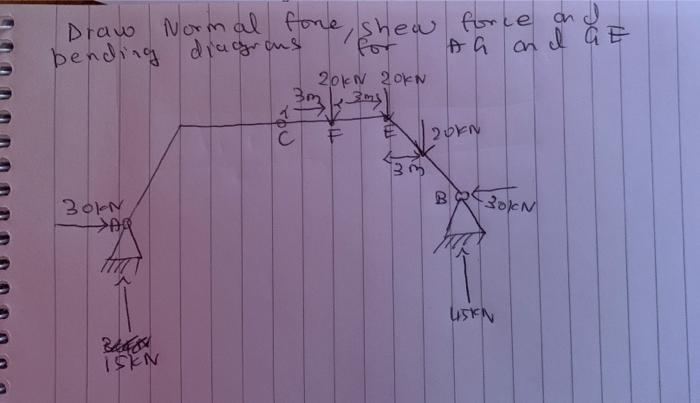 Draw Normal fone, shew force and
bending diagrams for AG and GE
20kN 20kN
3m 3m
C F E 20kN
3m
30kN A B 30kN
45KN
15KN